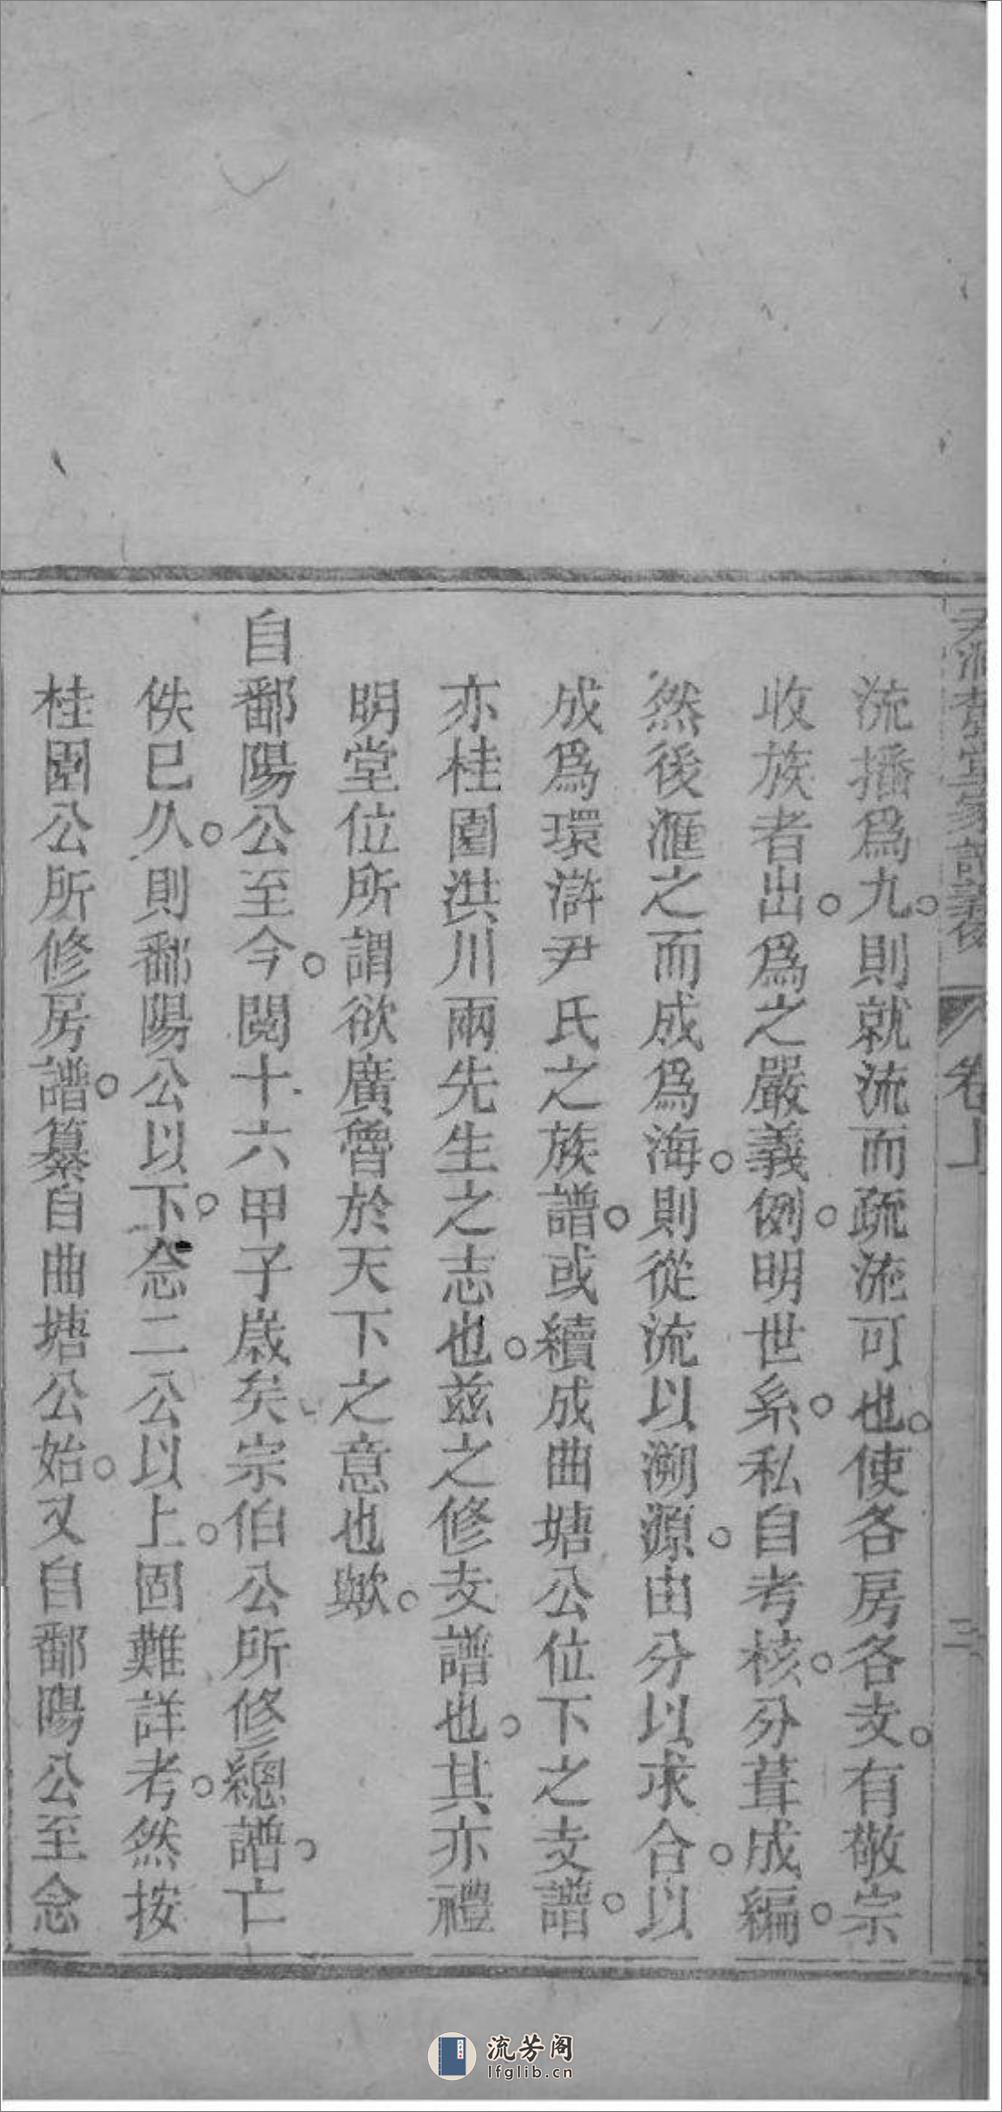 卷上
二
流播爲九。則就流而疏流可也。使各房各支。有敬宗
收族者出。爲之嚴義例。明世系。私自考核。分葺成編。
然後滙之而成爲海。則從流以溯源。由分以求合。以
成爲環滸尹氏之族譜。或續成曲塘公位下之支譜。
亦桂園洪川兩先生之志也。兹之修支譜也。其亦禮
明堂位所謂欲廣魯於天下之意也歟。
自鄱陽公至今。閱十六甲子歲矣、宗伯公所修總譜。亡
佚已久。則鄱陽公以下。念二公以上。固難詳考。然按
桂園公所修房譜。纂自曲塘公始。又自鄱陽公至念
流芳阁
lfglib.cn